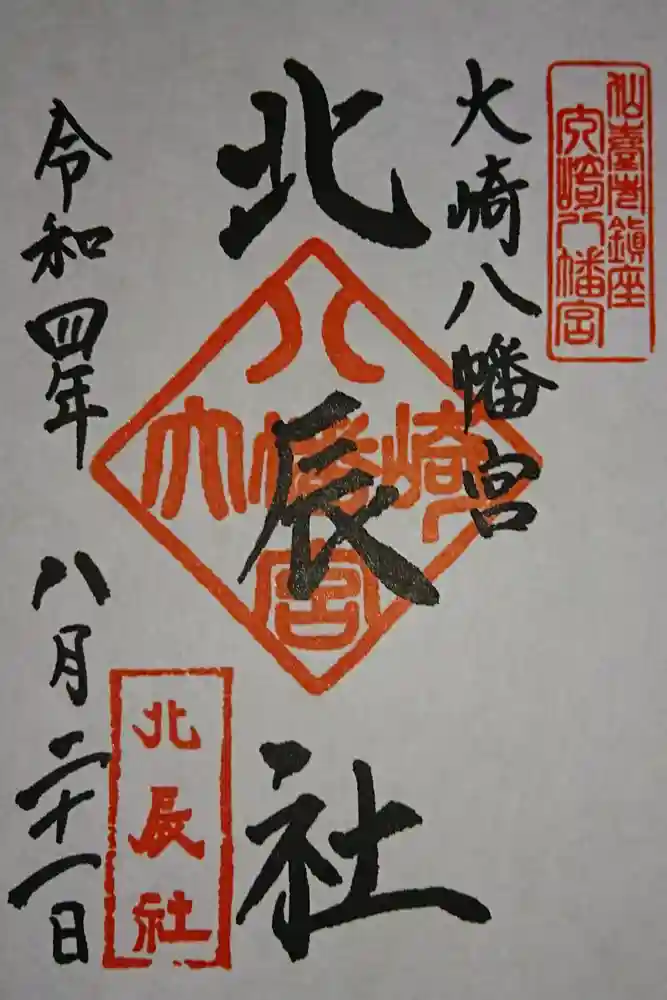 仙臺市鎮座
大崎八幡宮
大崎八幡宮
北辰社
八
大幡崎
宮
令和四年
八月二十一日
北辰社